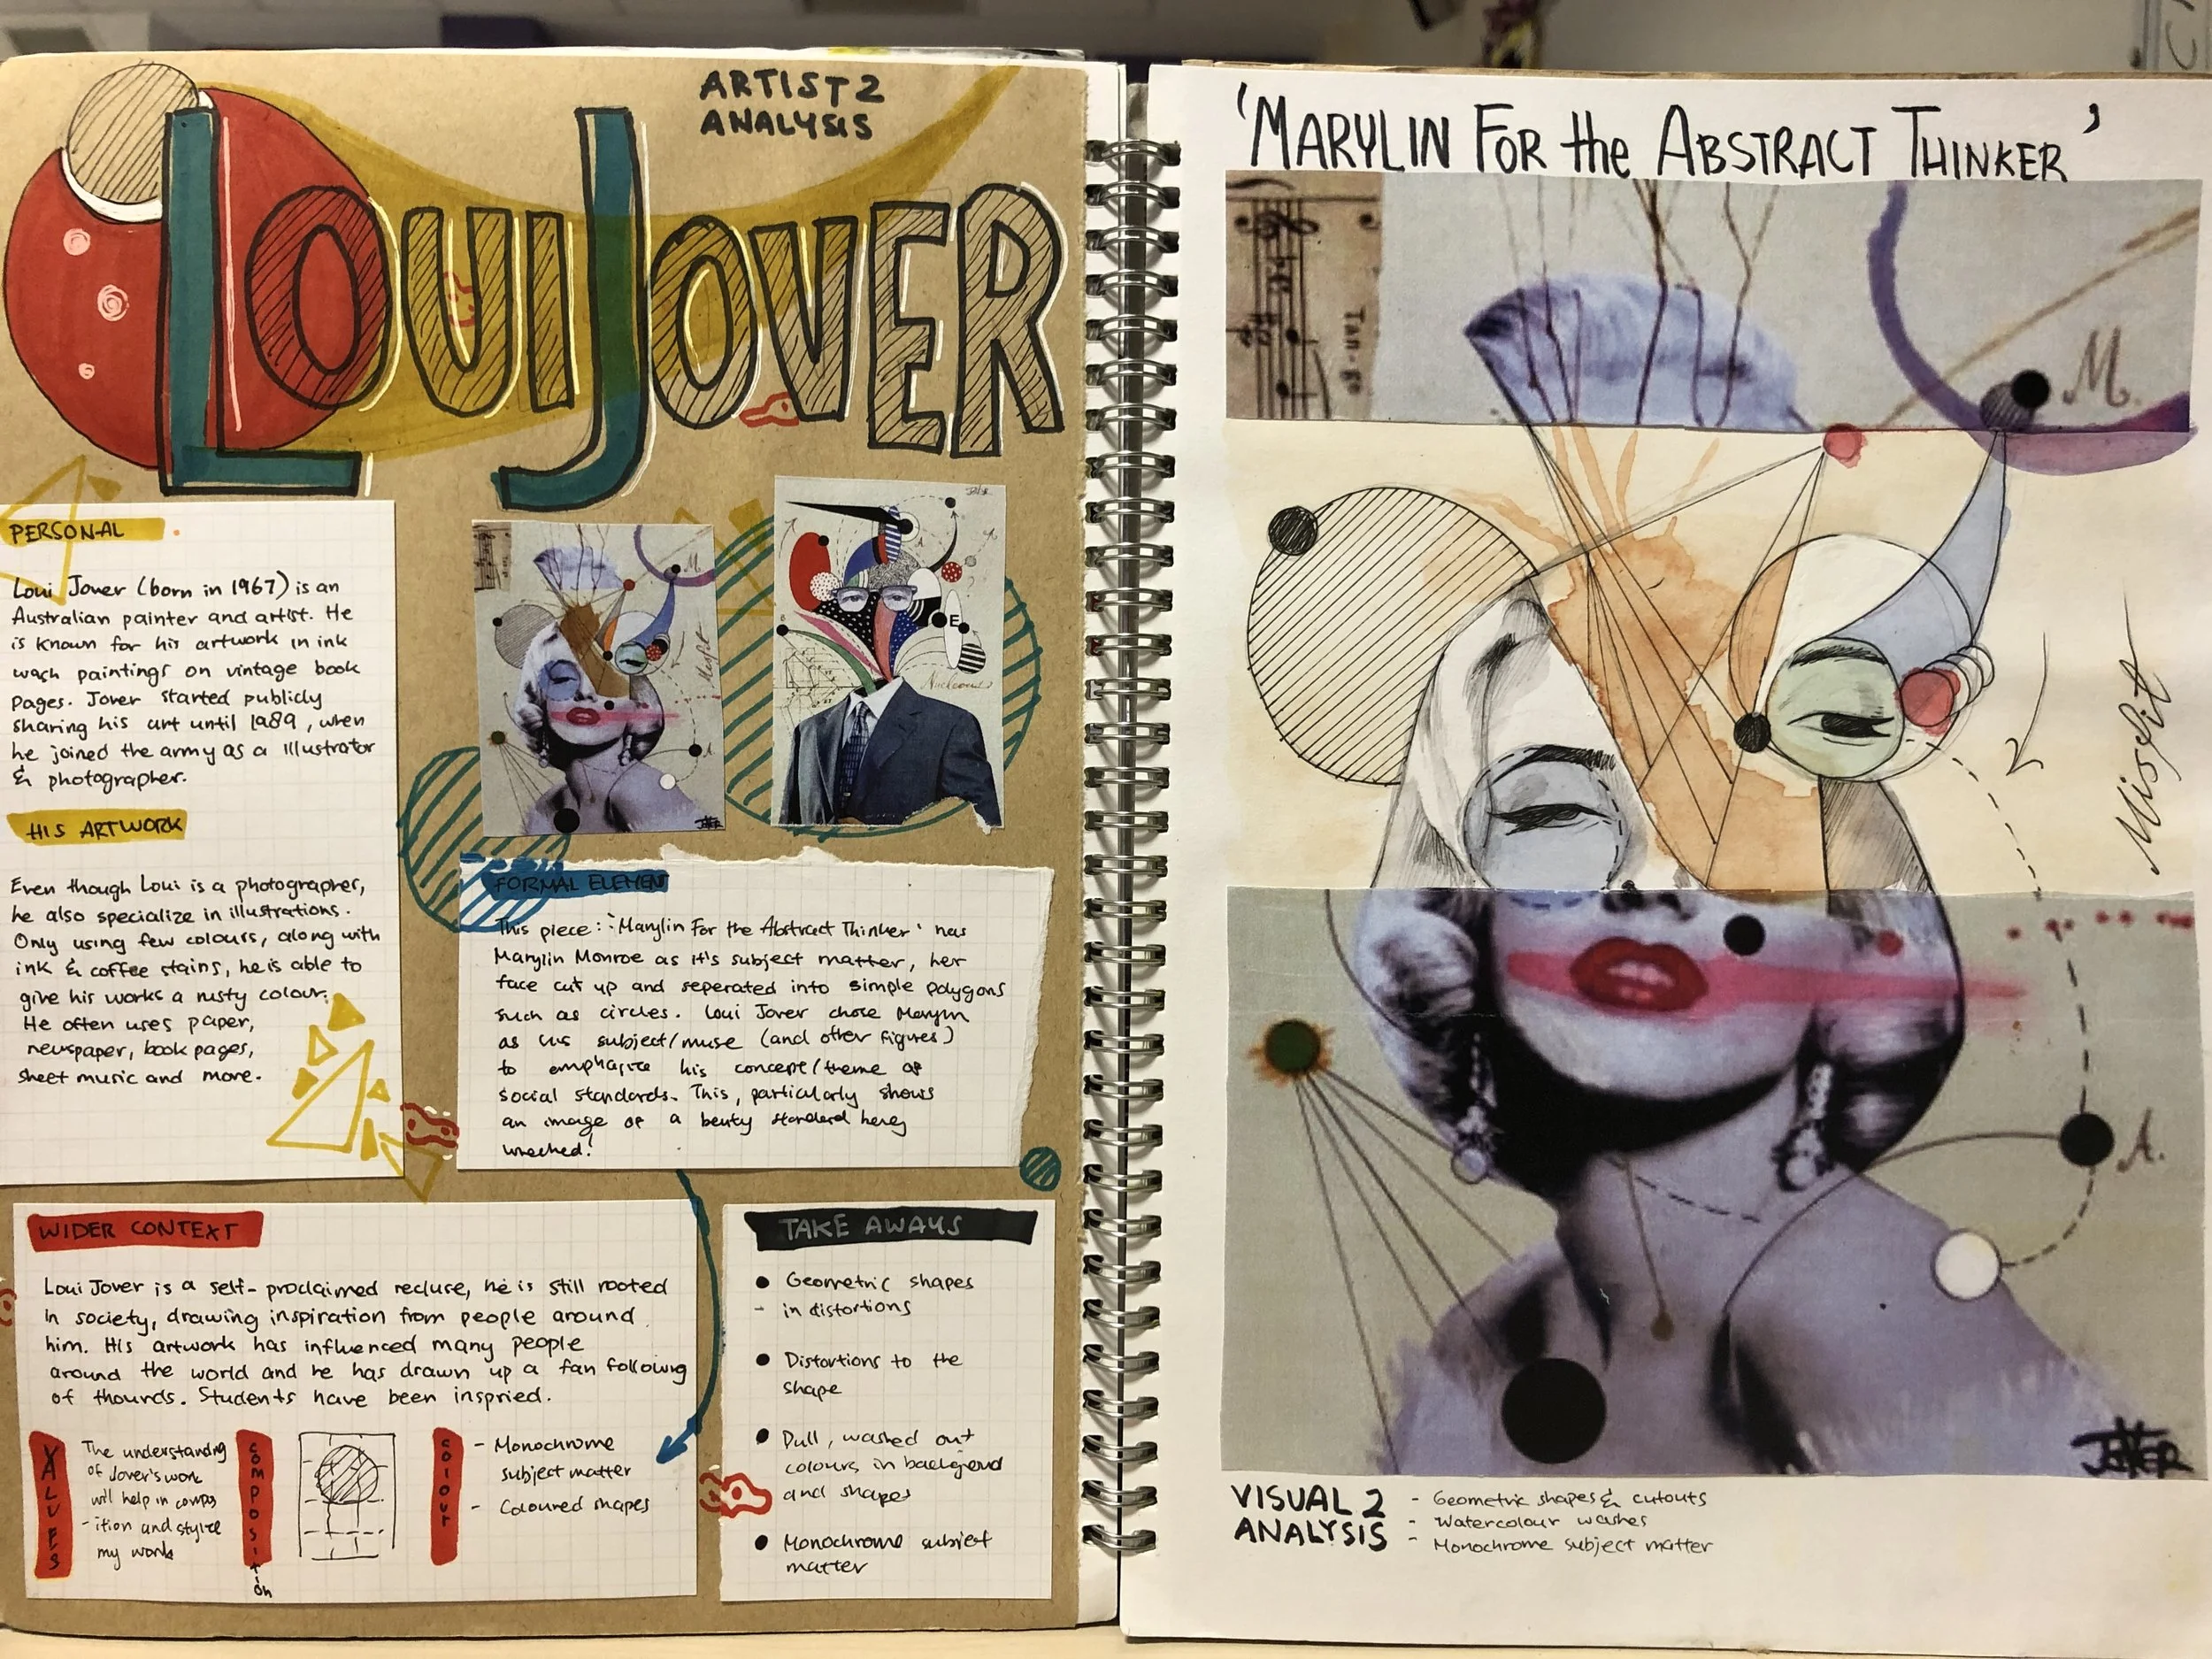 ARTIST 2
ANALYSIS
LOUI JOVER
PERSONAL
Loui Jover (born in 1967) is an
Australian painter and artist. He
is known for his artwork in ink
wash paintings on vintage book
pages. Jover started publicly
sharing his art until 1989, when
he joined the army as a illustrator
& photographer.
HIS ARTWORK
Even though Loui is a photographer,
he also specialize in illustrations.
Only using few colours, along with
ink & coffee stains, he is able to
give his works a rusty colour.
He often uses paper,
newspaper, book pages,
sheet music and more.
M
Misfit
A
JOVER
E
FORMAL ELEMENT
This piece: 'Marylin For the Abstract Thinker' has
Marylin Monroe as it's subject matter, her
face cut up and seperated into simple polygons
such as circles. Loui Jover chose Marylin
as his subject/muse (and other figures)
to emphasize his concept/theme of
social standards. This, particularly shows
an image of a beuty standard being
wrecked!
WIDER CONTEXT
Loui Jover is a self-proclaimed recluse, he is still rooted
in society, drawing inspiration from people around
him. His artwork has influenced many people
around the world and he has drawn up a fan following
of thounds. Students have been inspried.
VALUES
The understanding
of Jover's work
will help in compos
-ition and stylize
my work
composition
colour
- Monochrome
subject matter
- Coloured shapes
TAKE AWAYS
• Geometric shapes
- in distortions
• Distortions to the
shape
• Dull, washed out
colours in backgrond
and shapes
• Monochrome subject
matter
'MARYLIN FOR the ABSTRACT THINKER'
Tan-go
M.
Misfit
A.
JOVER
VISUAL 2
ANALYSIS
- Geometric shapes & cutouts
- Watercolour washes
- Monochrome subject matter